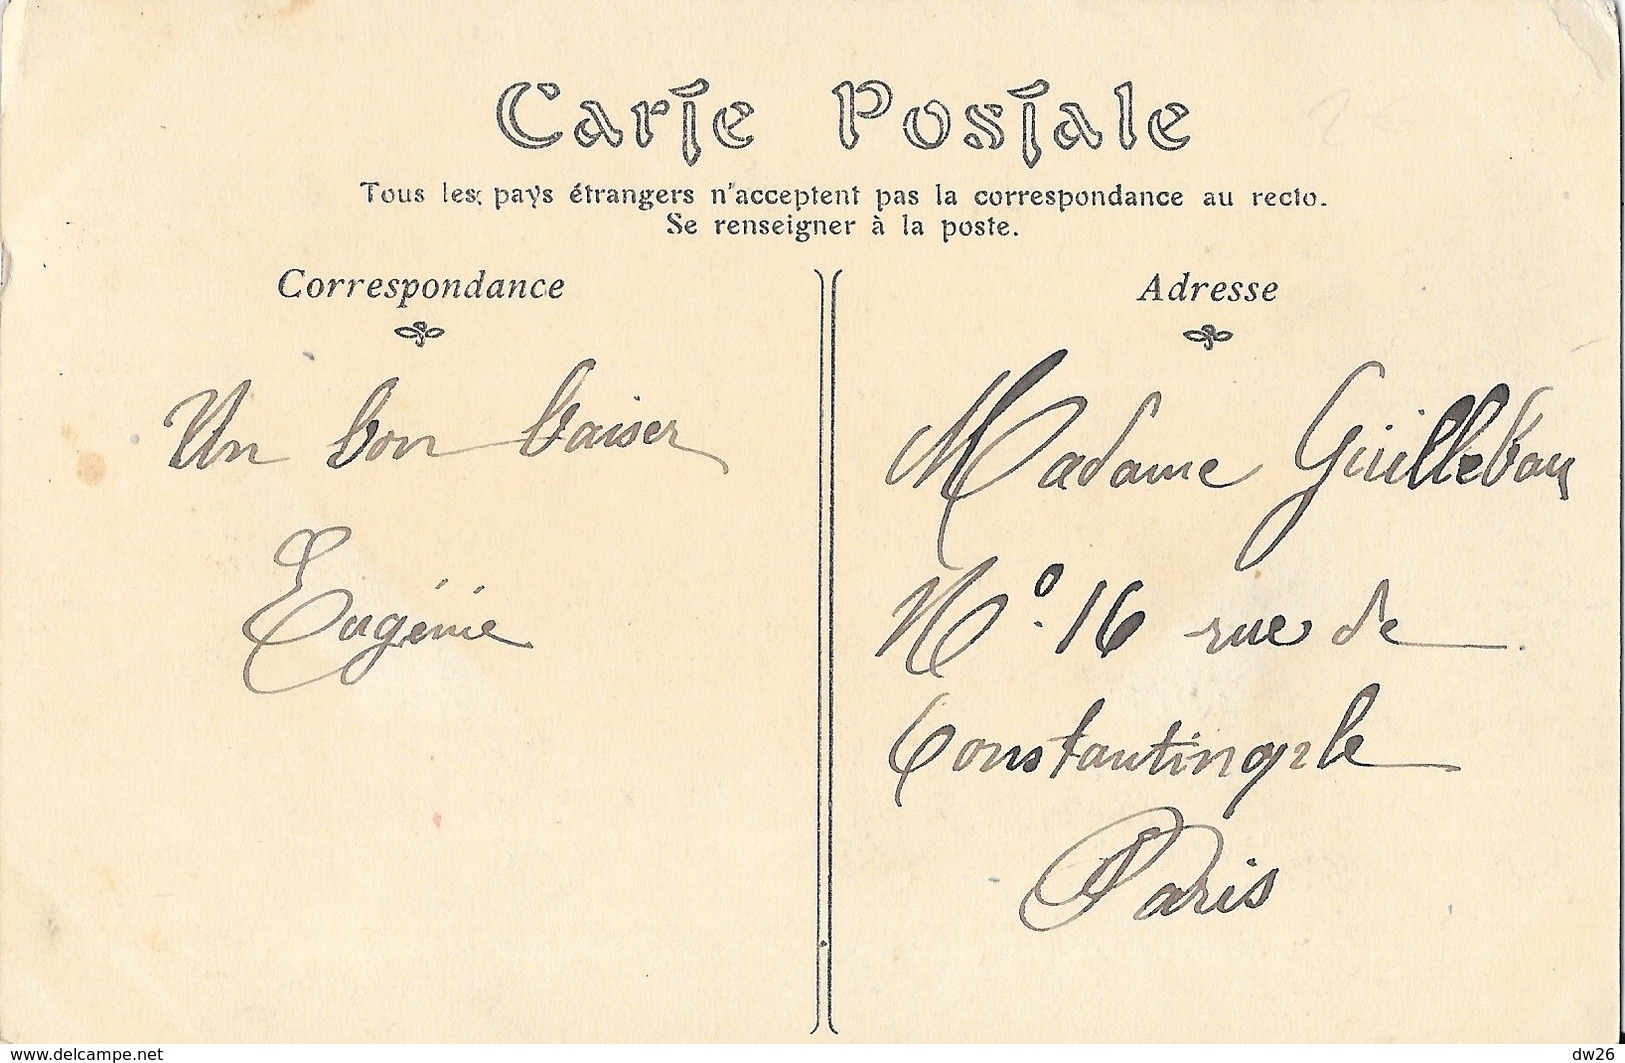 Carte Postale
Tous les pays étrangers n'acceptent pas la correspondance au recto.
Se renseigner à la poste.
Correspondance
Un bon baiser
Eugénie
Adresse
Madame
No. 16 rue de
Constantinople
Paris
www.delcampe.net
dw26